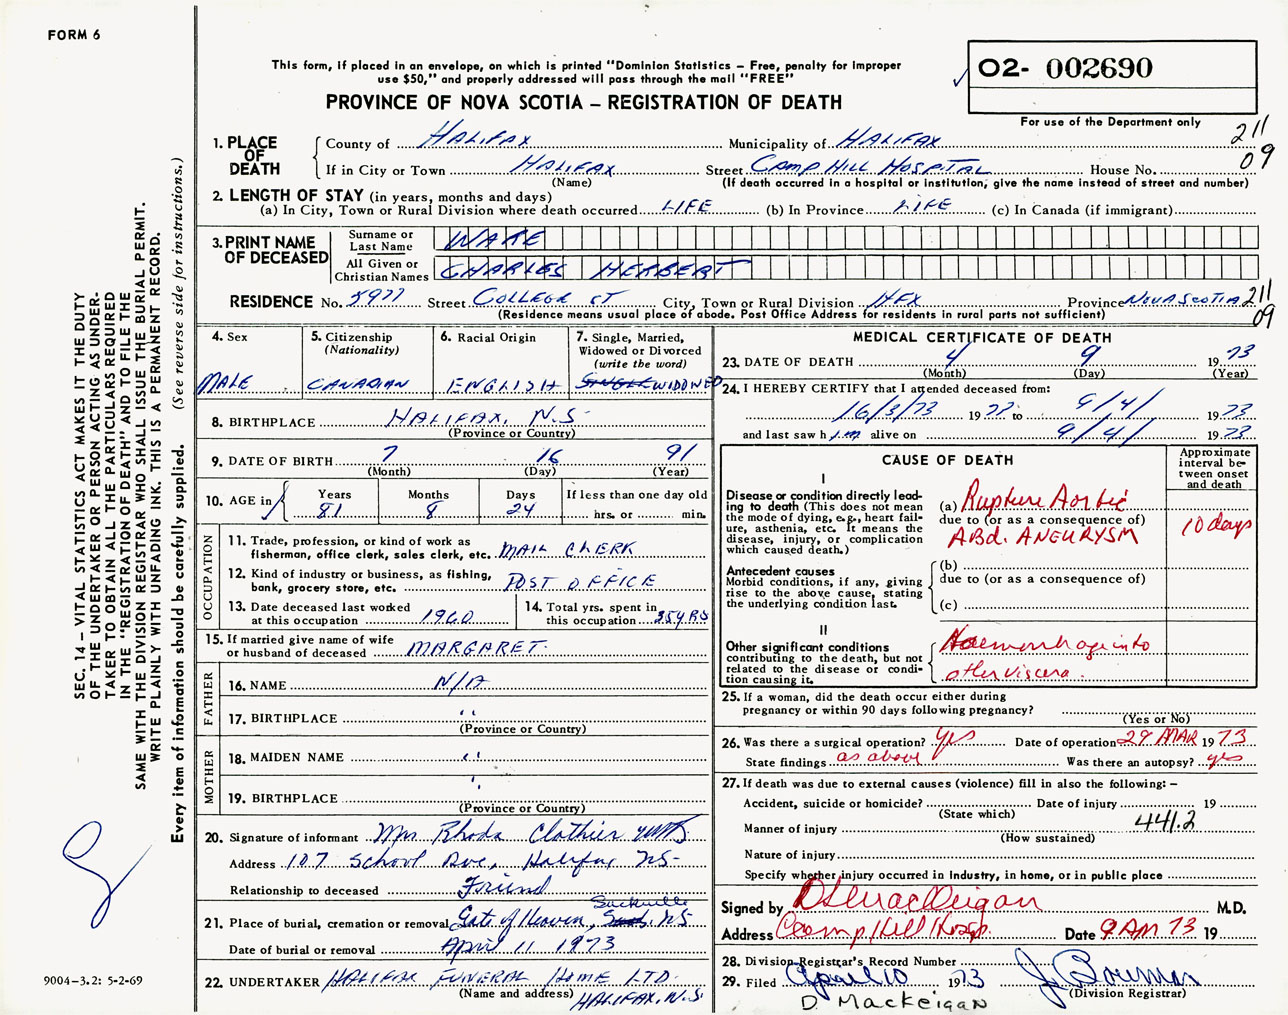 FORM 6
This form, if placed in an envelope, on which is printed "Dominion Statistics – Free, penalty for improper
use $50," and properly addressed will pass through the mail "FREE"
O2- 002690
For use of the Department only
PROVINCE OF NOVA SCOTIA – REGISTRATION OF DEATH
211
09
1. PLACE OF DEATH
County of HALIFAX Municipality of HALIFAX
If in City or Town HALIFAX Street CAMP HILL HOSPITAL House No.
(Name) (If death occurred in a hospital or institution, give the name instead of street and number)
2. LENGTH OF STAY (in years, months and days)
(a) In City, Town or Rural Division where death occurred LIFE (b) In Province LIFE (c) In Canada (if immigrant)
3. PRINT NAME OF DECEASED
Surname or Last Name WARE
All Given or Christian Names CHARLES HERBERT
RESIDENCE No. 5977 Street COLLEGE ST City, Town or Rural Division HFX Province NOVA SCOTIA 211
(Residence means usual place of abode. Post Office Address for residents in rural parts not sufficient) 09
4. Sex MALE
5. Citizenship (Nationality) CANADIAN
6. Racial Origin ENGLISH
7. Single, Married, Widowed or Divorced (write the word) SINGLE WIDOWED
8. BIRTHPLACE HALIFAX, N.S.
(Province or Country)
9. DATE OF BIRTH 7 16 91
(Month) (Day) (Year)
10. AGE in Years 81 Months 8 Days 24 If less than one day old
hrs. or min.
OCCUPATION
11. Trade, profession, or kind of work as
fisherman, office clerk, sales clerk, etc. MAIL CLERK
12. Kind of industry or business, as fishing,
bank, grocery store, etc. POST OFFICE
13. Date deceased last worked
at this occupation 1960
14. Total yrs. spent in
this occupation 35 YRS
15. If married give name of wife
or husband of deceased MARGARET
FATHER
16. NAME N/A
17. BIRTHPLACE "
(Province or Country)
MOTHER
18. MAIDEN NAME "
19. BIRTHPLACE "
(Province or Country)
20. Signature of informant Mrs Rhoda Clothier
Address 107 School Ave, Halifax NS
Relationship to deceased Friend
21. Place of burial, cremation or removal Gate of Heaven, Sackville, NS
Date of burial or removal April 11 1973
22. UNDERTAKER HALIFAX FUNERAL HOME LTD.
(Name and address) HALIFAX, N.S.
MEDICAL CERTIFICATE OF DEATH
23. DATE OF DEATH 4 9 1973
(Month) (Day) (Year)
24. I HEREBY CERTIFY that I attended deceased from:
16/3/73 19 to 9/4/ 1973
and last saw him alive on 9/4/ 1973
CAUSE OF DEATH
Approximate interval between onset and death
I
Disease or condition directly leading to death (This does not mean
the mode of dying, e.g., heart failure, asthenia, etc. It means the
disease, injury, or complication
which caused death.)
(a) Rupture Aortic
due to (or as a consequence of)
ABd. ANEURYSM
10 days
Antecedent causes
Morbid conditions, if any, giving
rise to the above cause, stating
the underlying condition last.
(b)
due to (or as a consequence of)
(c)
II
Other significant conditions
contributing to the death, but not
related to the disease or condition
causing it.
Haemorrhage into
other viscera.
25. If a woman, did the death occur either during
pregnancy or within 90 days following pregnancy?
(Yes or No)
26. Was there a surgical operation? yes Date of operation 29 MAR 1973
State findings as above Was there an autopsy? yes
27. If death was due to external causes (violence) fill in also the following: –
Accident, suicide or homicide? Date of injury 19
(State which)
Manner of injury 441.2
(How sustained)
Nature of injury
Specify whether injury occurred in industry, in home, or in public place
Signed by D S MacKeigan M.D.
Address Camp Hill Hosp. Date 9 Ap 73 19
28. Division Registrar's Record Number
29. Filed April 10 1973 J. Bowman
(Division Registrar)
D. MacKeigan
SEC. 14 – VITAL STATISTICS ACT MAKES IT THE DUTY
OF THE UNDERTAKER OR PERSON ACTING AS UNDER-
TAKER TO OBTAIN ALL THE PARTICULARS REQUIRED
IN THE "REGISTRATION OF DEATH" AND TO FILE THE
SAME WITH THE DIVISION REGISTRAR WHO SHALL ISSUE THE BURIAL PERMIT.
WRITE PLAINLY WITH UNFADING INK. THIS IS A PERMANENT RECORD.
Every item of information should be carefully supplied. (See reverse side for instructions.)
9004–3.2: 5-2-69